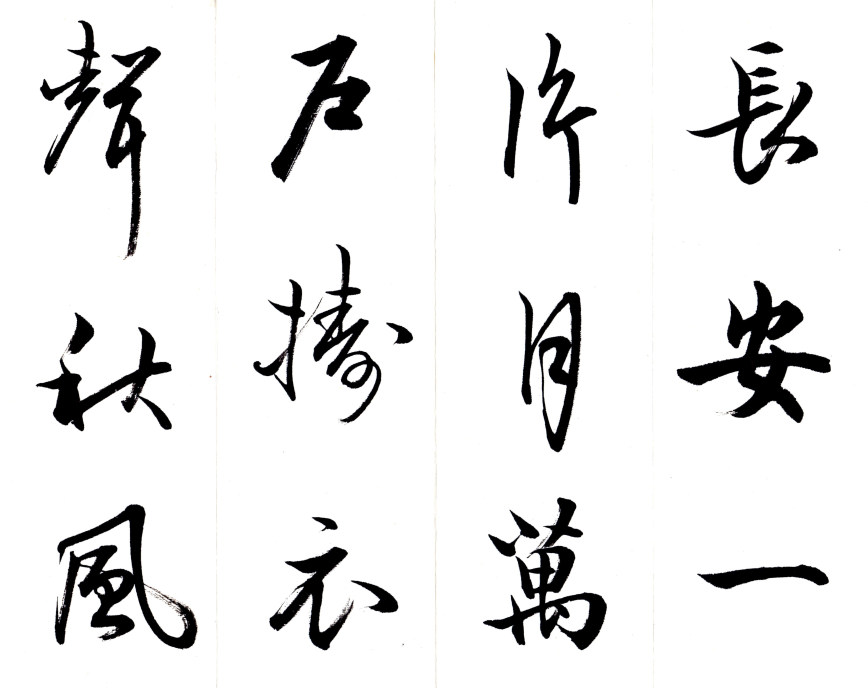 長安一
片月萬
戶擣衣
聲秋風